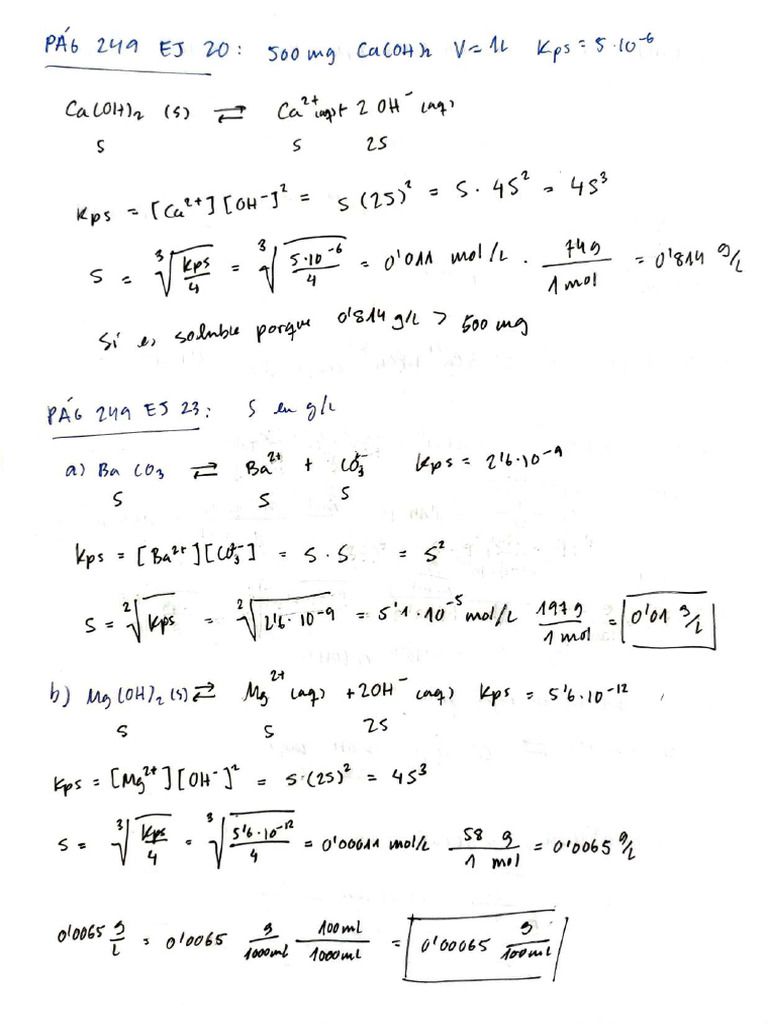 PÁG 249 EJ 20: 500 mg Ca(OH)2 V = 1L Kps = 5·10^-6
Ca(OH)2 (s) ⇄ Ca^2+ (aq) + 2 OH^- (aq)
S S 2S
Kps = [Ca^2+][OH^-]^2 = S(2S)^2 = S·4S^2 = 4S^3
S = ∛(Kps/4) = ∛(5·10^-6/4) = 0'011 mol/L · 74g/1 mol = 0'814 g/L
Sí es soluble porque 0'814 g/L > 500 mg
PÁG 249 EJ 23: S en g/L
a) BaCO3 ⇄ Ba^2+ + CO3^- Kps = 2'6·10^-9
S S S
Kps = [Ba^2+][CO3^-] = S·S = S^2
S = ²√Kps = ²√(2'6·10^-9) = 5'1·10^-5 mol/L 197g/1 mol = 0'01 g/L
b) Mg(OH)2 (s) ⇄ Mg^2+ (aq) + 2OH^- (aq) Kps = 5'6·10^-12
S S 2S
Kps = [Mg^2+][OH^-]^2 = S·(2S)^2 = 4S^3
S = ∛(Kps/4) = ∛(5'6·10^-12/4) = 0'00011 mol/L 58 g/1 mol = 0'0065 g/L
0'0065 g/L = 0'0065 g/1000ml 100ml/1000ml = 0'00065 g/100ml